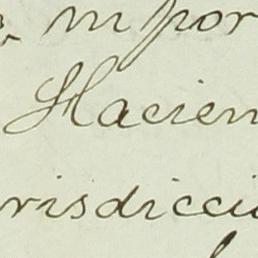 impor
Hacien
risdicci